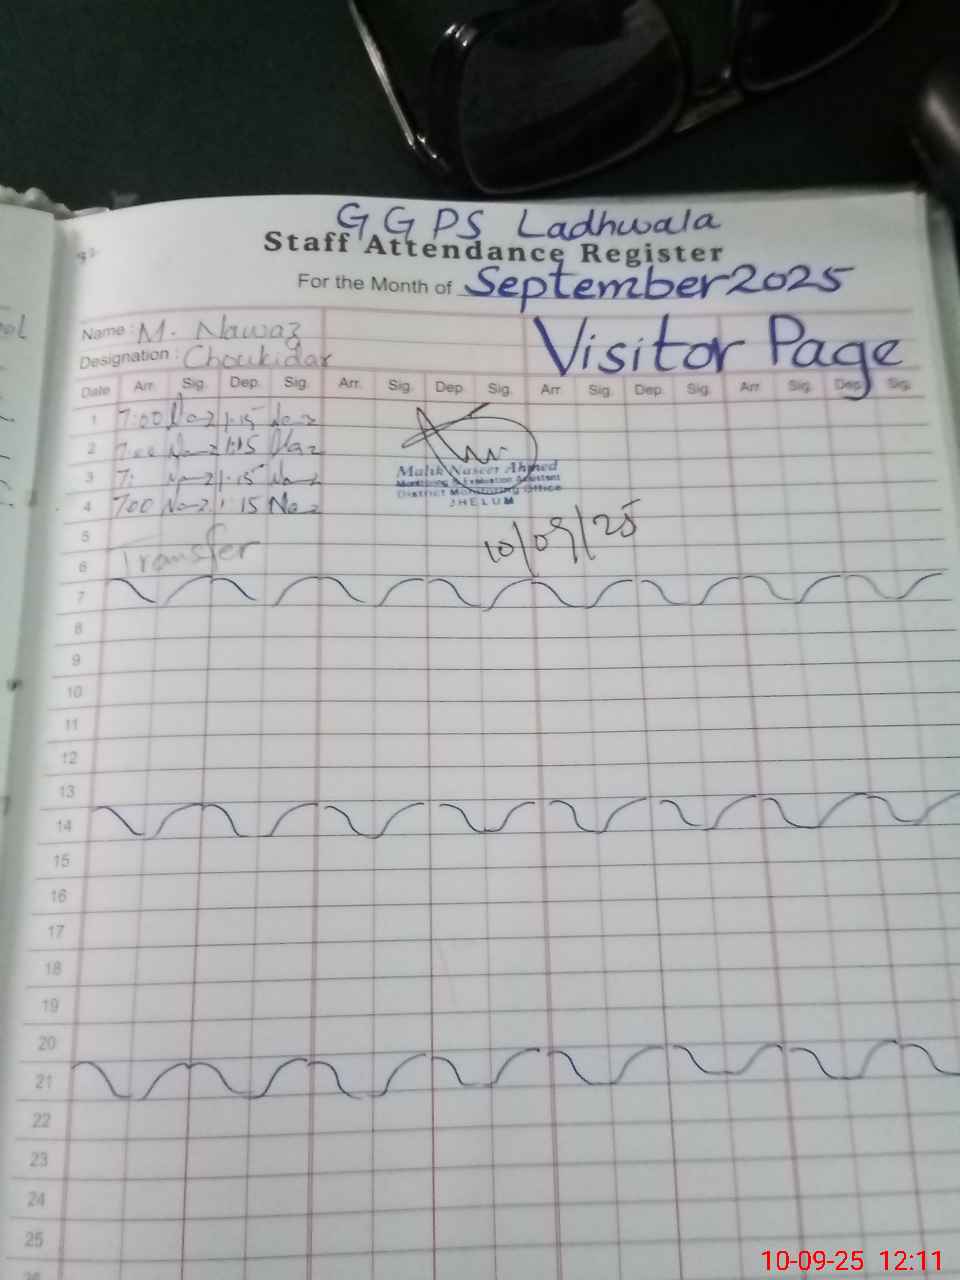 G G P S Ladhwala
Staff Attendance Register
For the Month of September 2025
Name : M. Nawaz
Visitor Page
Designation : Choukidar
Date Arr. Sig. Dep. Sig. Arr. Sig. Dep. Sig. Arr. Sig. Dep. Sig. Arr. Sig. Dep. Sig.
1 7:00 1:15
2 7:00 1:15
3 7: 1:15
Malik Naseer Ahmed
Monitoring & Evaluation Assistant
District Monitoring Office
JHELUM
4 700 1:15
5
10/09/25
6 Transfer
7
8
9
10
11
12
13
14
15
16
17
18
19
20
21
22
23
24
25
10-09-25 12:11